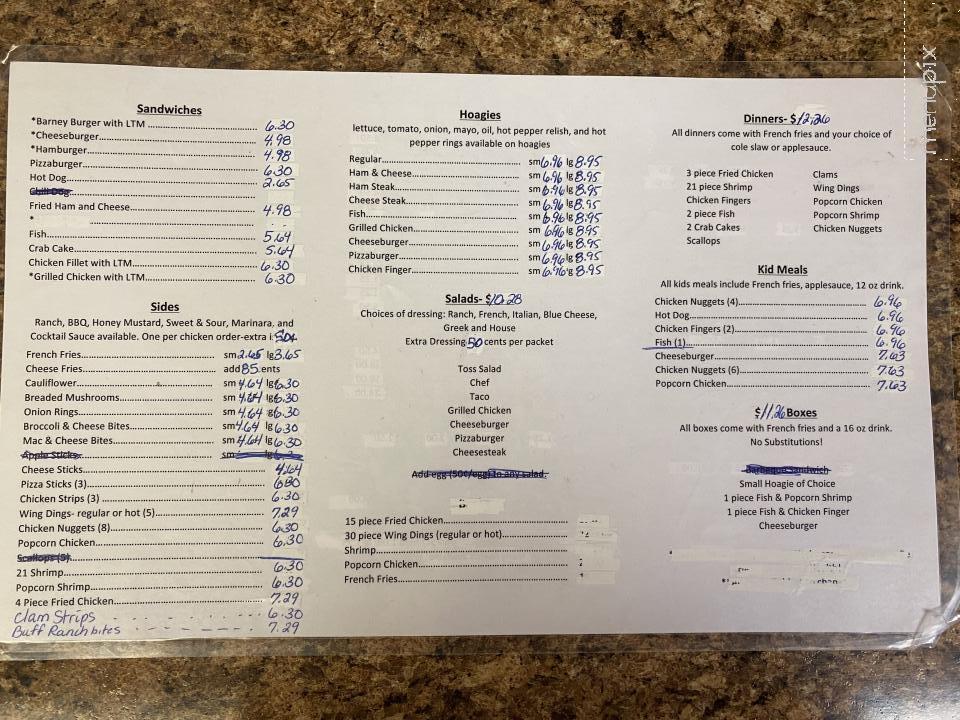 Sandwiches
*Barney Burger with LTM 6.30
*Cheeseburger 4.98
*Hamburger 4.98
Pizzaburger 6.30
Hot Dog 2.65
Chili Dog
Fried Ham and Cheese 4.98
*
Fish 5.64
Crab Cake 5.64
Chicken Fillet with LTM 6.30
*Grilled Chicken with LTM 6.30
Sides
Ranch, BBQ, Honey Mustard, Sweet & Sour, Marinara, and
Cocktail Sauce available. One per chicken order-extra is 50¢
French Fries sm 2.65 lg 3.65
Cheese Fries add 85 cents
Cauliflower sm 4.64 lg 6.30
Breaded Mushrooms sm 4.64 lg 6.30
Onion Rings sm 4.64 lg 6.30
Broccoli & Cheese Bites sm 4.64 lg 6.30
Mac & Cheese Bites sm 4.64 lg 6.30
Apple Sticks sm
Cheese Sticks 4.64
Pizza Sticks (3) 6.30
Chicken Strips (3) 6.30
Wing Dings- regular or hot (5) 7.29
Chicken Nuggets (8) 6.30
Popcorn Chicken 6.30
Scallops (5)
21 Shrimp 6.30
Popcorn Shrimp 6.30
4 Piece Fried Chicken 7.29
Clam Strips 6.30
Buff Ranch bites 7.29
Hoagies
lettuce, tomato, onion, mayo, oil, hot pepper relish, and hot
pepper rings available on hoagies
Regular sm 6.96 lg 8.95
Ham & Cheese sm 6.96 lg 8.95
Ham Steak sm 6.96 lg 8.95
Cheese Steak sm 6.96 lg 8.95
Fish sm 6.96 lg 8.95
Grilled Chicken sm 6.96 lg 8.95
Cheeseburger sm 6.96 lg 8.95
Pizzaburger sm 6.96 lg 8.95
Chicken Finger sm 6.96 lg 8.95
Salads- $10.28
Choices of dressing: Ranch, French, Italian, Blue Cheese,
Greek and House
Extra Dressing 50 cents per packet
Toss Salad
Chef
Taco
Grilled Chicken
Cheeseburger
Pizzaburger
Cheesesteak
Add egg (50¢/egg) to any salad.
15 piece Fried Chicken
30 piece Wing Dings (regular or hot)
Shrimp
Popcorn Chicken
French Fries
Dinners- $12.26
All dinners come with French fries and your choice of
cole slaw or applesauce.
3 piece Fried Chicken Clams
21 piece Shrimp Wing Dings
Chicken Fingers Popcorn Chicken
2 piece Fish Popcorn Shrimp
2 Crab Cakes Chicken Nuggets
Scallops
Kid Meals
All kids meals include French fries, applesauce, 12 oz drink.
Chicken Nuggets (4) 6.96
Hot Dog 6.96
Chicken Fingers (2) 6.96
Fish (1) 6.96
Cheeseburger 7.63
Chicken Nuggets (6) 7.63
Popcorn Chicken 7.63
$11.26 Boxes
All boxes come with French fries and a 16 oz drink.
No Substitutions!
Barbeque Sandwich
Small Hoagie of Choice
1 piece Fish & Popcorn Shrimp
1 piece Fish & Chicken Finger
Cheeseburger
menupix